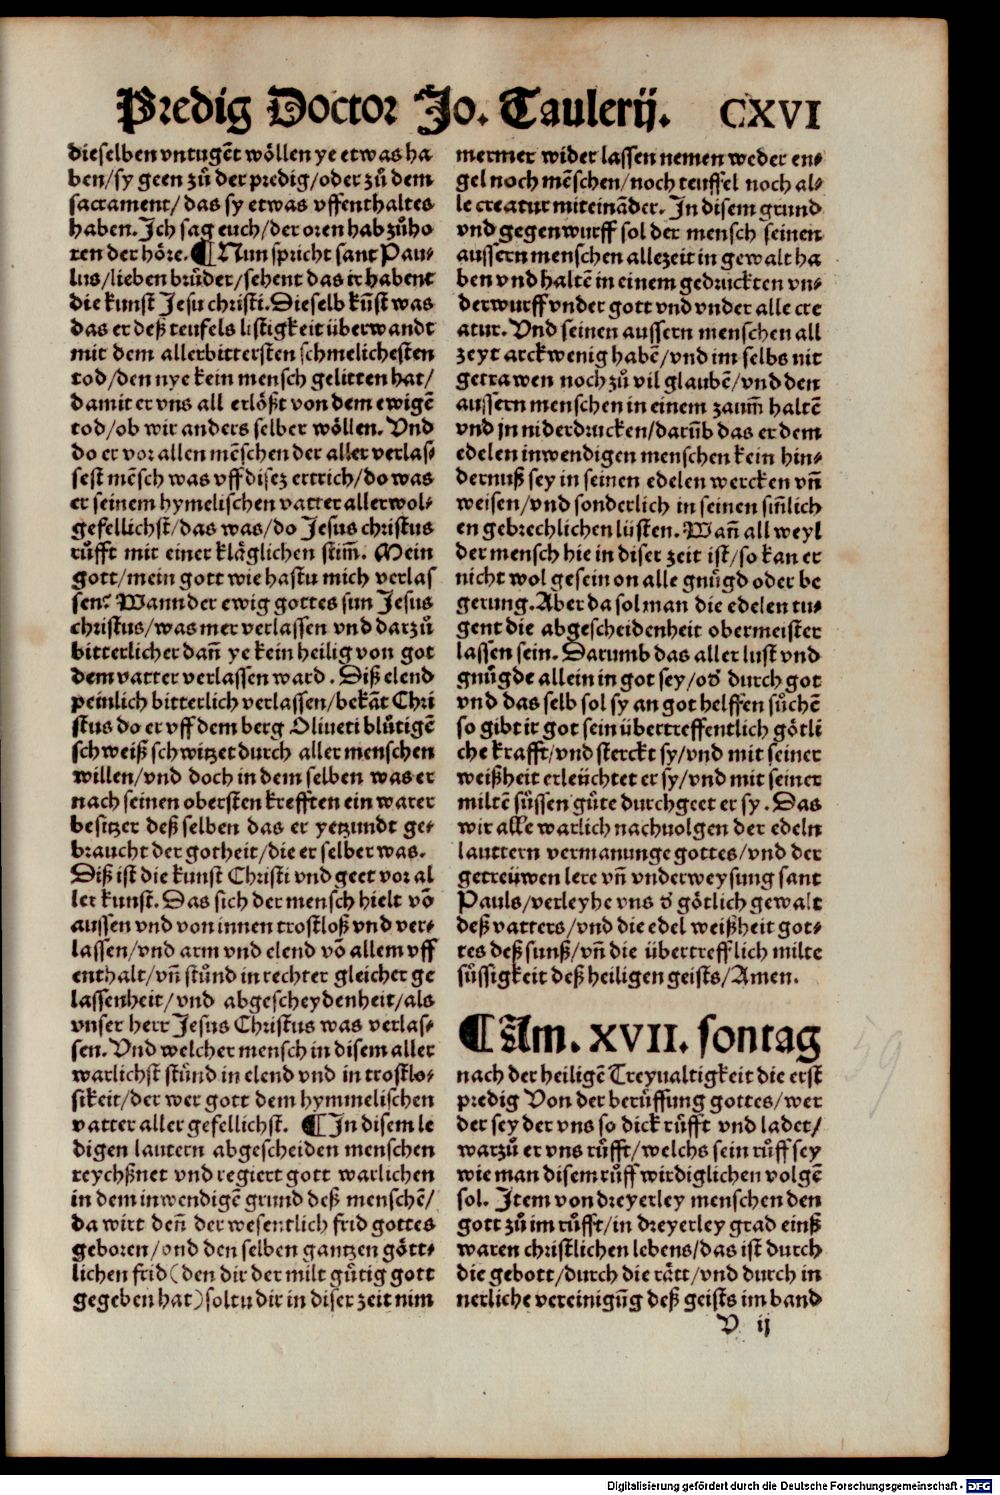 Predig Doctor Jo. Taulerij. CXVI
dieselben vntugēt wöllen ye etwas ha
ben/sy geen zů der predig/oder zů dem
sacrament/ das sy etwas vffenthaltes
haben. Ich sag euch/der oren hab zůho
ren der höre. ¶ Nun spricht sant Pau⸗
lus/lieben brůder/sehent das ir habent
die kunst Jesu christi. Dieselb kūst was
das er deß teufels listigkeit überwandt
mit dem allerbittersten schmelichesten
tod/den nye kein mensch gelitten hat/
damit er vns all erlößt von dem ewigē
tod/ob wir anders selber wöllen. Vnd
do er vor allen mēschen der aller verlas⸗
sest mēsch was vff disez ertrich/do was
er seinem hymelischen vatter allerwol⸗
gefellichst/das was/do Jesus christus
růfft mit einer kläglichen stim̄. Mein
gott/mein gott wie hastu mich verlas
sen? Wann der ewig gottes sun Jesus
christus/was mer verlassen vnd darzů
bitterlicher dan̄ ye kein heilig von got
dem vatter verlassen ward. Diß elend
peinlich bitterlich verlassen/bekāt Chri
stus do er vff dem berg Oliueti blůtigē
schweiß schwitzet durch aller menschen
willen/vnd doch in dem selben was er
nach seinen obersten krefften ein warer
besitzer deß selben das er yetzundt ge⸗
braucht der gotheit/die er selber was.
Diß ist die kunst Christi vnd geet vor al
ler kunst. Das sich der mensch hielt vō
aussen vnd von innen trostloß vnd ver⸗
lassen/vnd arm vnd elend vō allem vff
enthalt/vn̄ stůnd in rechter gleicher ge
lassenheit/vnd abgescheydenheit/als
vnser herr Jesus Christus was verlas⸗
sen. Vnd welcher mensch in disem aller
warlichst stůnd in elend vnd in trostlo⸗
sikeit/der wer gott dem hymmelischen
vatter aller gefellichst. ¶ In disem le
digen lautern abgescheiden menschen
reychßnet vnd regiert gott warlichen
in dem inwendigē grund deß menschē/
da wirt den̄ der wesentlich frid gottes
geboren/vnd den selben gantzen gött⸗
lichen frid (den dir der milt gütig gott
gegeben hat) soltu dir in diser zeit nim
mermer wider lassen nemen weder en⸗
gel noch mēschen/noch teuffel noch al⸗
le creatur miteināder. In disem grund
vnd gegenwurff sol der mensch seinen
aussern menschen allezeit in gewalt ha
ben vnd haltē in einem gedruckten vn⸗
derwurff vnder gott vnd vnder alle cre
atur. Vnd seinen aussern menschen all
zeyt arckwenig habē/vnd im selbs nit
getrawen noch zů vil glaubē/vnd den
aussern menschen in einem zaum̄ haltē
vnd jn niderdrucken/darūb das er dem
edelen inwendigen menschen kein hin⸗
dernuß sey in seinen edelen wercken vn̄
weisen/vnd sonderlich in seinen sin̄lich
en gebrechlichen lüsten. Wan̄ all weyl
der mensch hie in diser zeit ist/so kan er
nicht wol gesein on alle gnügd oder be
gerung. Aber da sol man die edelen tu⸗
gent die abgescheidenheit obermeister
lassen sein. Darumb das aller lust vnd
gnügde allein in got sey/od̄ durch got
vnd das selb sol sy an got helffen sůchē
so gibt ir got sein übertreffentlich götli
che krafft/vnd sterckt sy/vnd mit seiner
weißheit erleüchtet er sy/vnd mit seiner
miltē süssen güte durchgeet er sy. Das
wir alle warlich nachuolgen der edeln
lauttern vermanunge gottes/vnd der
getreüwen lere vn̄ vnderweysung sant
Pauls/verleyhe vns d̄ götlich gewalt
deß vatters/vnd die edel weißheit got⸗
tes deß sunß/vn̄ die übertrefflich milte
süssigkeit deß heiligen geists/Amen.
¶ Am. XVII. sontag
nach der heiligē Treyualtigkeit die erst
predig Von der berůffung gottes/wer
der sey der vns so dick růfft vnd ladet/
warzů er vns růfft/welchs sein růff sey
wie man disem růff wirdiglichen volgē
sol. Item von dreyerley menschen den
gott zů im růfft/in dreyerley grad einß
waren christlichen lebens/das ist durch
die gebott/durch die rätt/vnd durch in
nerliche vereinigūg deß geists im band
V ij
59
Digitalisierung gefördert durch die Deutsche Forschungsgemeinschaft - DFG